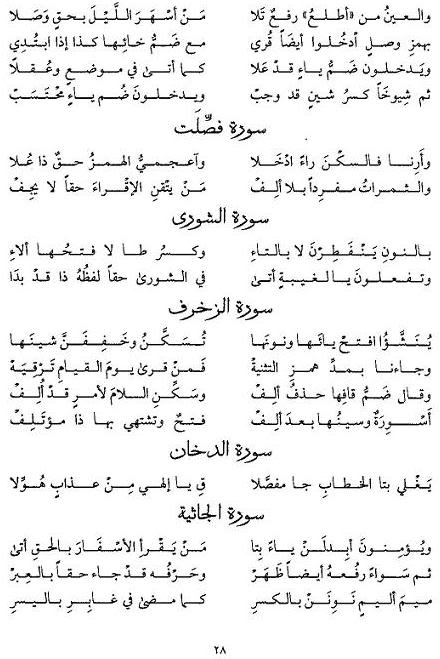 والعينُ من «أطلعُ» رفعٌ تَلا مَنْ أسْهَرَ اللَّيْلَ بحقٍ وَصَلا
بهمزِ وصلٍ أدْخُلوا أيضاً قُري مع ضَمُّ خائِها كذا إذا ابتُدِي
ويَدخلون ضَمُّ ياءٍ قدْ عَلا كما أتىٰ في موضعٍ وعُقلا
ثم شِيوخَاً كسرُ شينٍ قد وجبْ ويدخلونَ ضُم ياءٍ مُحْتَسَبْ
سورة فصِّلت
وأَرِنا فالسكْنَ راءً ادْخَلا وآعجميُّ الهمزُ حقٌ ذا عُلا
والثمراتُ مفرداً بلا ألِفْ مَنْ يتْقنِ الإقْراءَ حقاً لا يجِفْ
سورة الشورى
بالنونِ يَنْفَطِرْنَ لا بالتاءِ وكسرُ طا لا فتحُها ألاءِ
وتفعلون يا لغيبةٍ أتىٰ في الشورىٰ حقاً لفظُهُ ذا قدْ بدَا
سورة الزخرف
يُنَشَّؤُا افتحْ يائَها ونونَها تُسَكَّنُ وخَفِّفَنَّ شينَها
وجاءنا بمدِّ همزِ التثنيةْ فَمنْ قرىٰ يومَ القيامِ تَرْقيَةْ
وقال ضَمُّ قافِها حذفُ ألِفْ وسَكِّنِ السلامَ لأمرٍ قدْ أُلِفْ
أسْوِرَةٌ وسينُها بعدَ ألِفْ فتحٌ وتشتهي بها ذا مؤتَلِفْ
سورة الدخان
يَغْلي بتا الخطابِ جا مفصَّلا قِ يا إلهي مِنْ عذابٍ هُوِّلا
سورة الجاثية
ويُؤمنون أبدلَنْ ياءً بِتا مَنْ يَقْرأِ الأسْفارَ بالحقِ أتىٰ
ثم سَواءً رفْعهُ أيضاً ظَهَرْ وحَرْفُه قدْ جاء حقاً بالعِبرْ
ميمَ أليمٍ نَونَنْ بالكسرِ كما مضىٰ في غابرٍ باليسرِ
٢٨